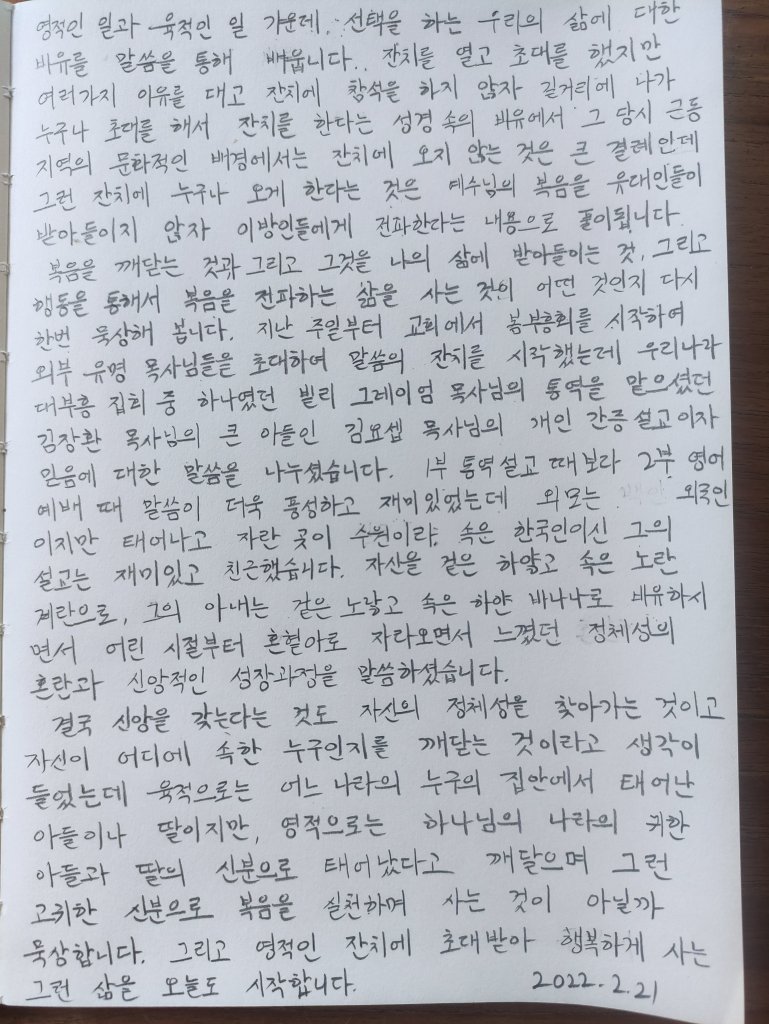 영적인 일과 육적인 일 가운데, 선택을 하는 우리의 삶에 대한
비유를 말씀을 통해 배웁니다. 잔치를 열고 초대를 했지만
여러가지 이유를 대고 잔치에 참석을 하지 않자 길거리에 나가
누구나 초대를 해서 잔치를 한다는 성경 속의 비유에서 그 당시 근동
지역의 문화적인 배경에서는 잔치에 오지 않는 것은 큰 결례인데
그런 잔치에 누구나 오게 한다는 것은 예수님의 복음을 유대인들이
받아들이지 않자 이방인들에게 전파한다는 내용으로 풀이됩니다.
복음을 깨닫는 것과 그리고 그것을 나의 삶에 받아들이는 것, 그리고
행동을 통해서 복음을 전파하는 삶을 사는 것이 어떤 것인지 다시
한번 묵상해 봅니다. 지난 주일부터 교회에서 봄부흥회를 시작하여
외부 유명 목사님들을 초대하여 말씀의 잔치를 시작했는데 우리나라
대부흥 집회 중 하나였던 빌리 그레이엄 목사님의 통역을 맡으셨던
김장환 목사님의 큰 아들인 김요셉 목사님의 개인 간증 설교이자
믿음에 대한 말씀을 나누셨습니다. 1부 통역설교 때보라 2부 영어
예배 때 말씀이 더욱 풍성하고 재미있었는데 외모는 외국인
이지만 태어나고 자란 곳이 수원이라, 속은 한국인이신 그의
설교는 재미있고 친근했습니다. 자신을 겉은 하얗고 속은 노란
계란으로, 그의 아내는 겉은 노랗고 속은 하얀 바나나로 비유하시
면서 어린 시절부터 혼혈아로 자라오면서 느꼈던 정체성의
혼란과 신앙적인 성장과정을 말씀하셨습니다.
결국 신앙을 갖는다는 것도 자신의 정체성을 찾아가는 것이고
자신이 어디에 속한 누구인지를 깨닫는 것이라고 생각이
들었는데 육적으로는 어느 나라의 누구의 집안에서 태어난
아들이나 딸이지만, 영적으로는 하나님의 나라의 귀한
아들과 딸의 신분으로 태어났다고 깨달으며 그런
고귀한 신분으로 복음을 실천하며 사는 것이 아닐까
묵상합니다. 그리고 영적인 잔치에 초대받아 행복하게 사는
그런 삶을 오늘도 시작합니다. 2022.2.21